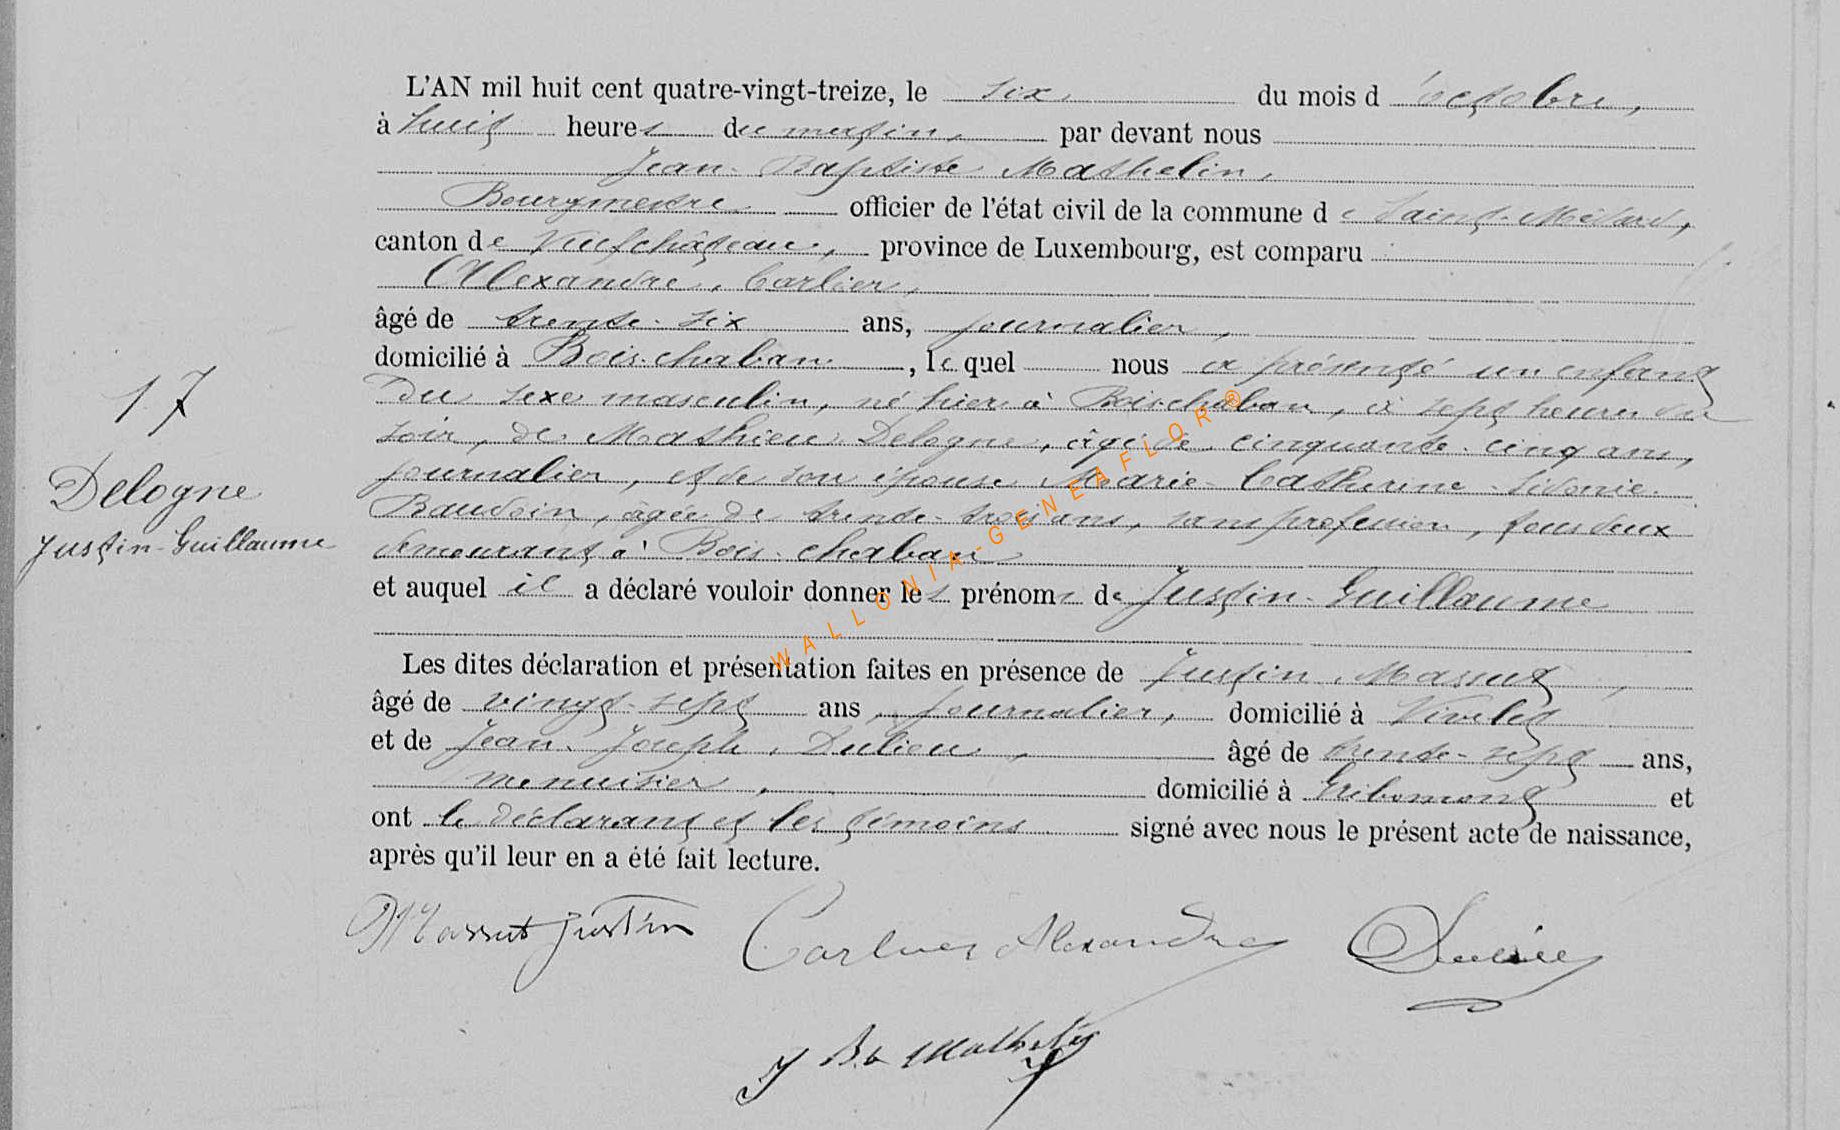 L'AN mil huit cent quatre-vingt-treize, le six du mois d'octobre,
à huit heures du matin, par devant nous
Jean-Baptiste Mathelin,
Bourgmestre officier de l'état civil de la commune de Saint-Médard,
canton de Neufchâteau, province de Luxembourg, est comparu
Alexandre Carlier,
âgé de trente-six ans, journalier,
domicilié à Bois-chaban, lequel nous a présenté un enfant
du sexe masculin, né hier à Boischaban, à sept heures du
soir, de Mathieu Delogne, âgé de cinquante-cinq ans,
journalier, et de son épouse Marie-Catherine-Sidonie
Baudoin, âgée de trente-trois ans, sans profession, tous deux
demeurant à Bois-chaban
17
Delogne
Justin-Guillaume
et auquel il a déclaré vouloir donner les prénoms de Justin-Guillaume
Les dites déclaration et présentation faites en présence de Justin Massut,
âgé de vingt-sept ans, journalier, domicilié à
et de Jean-Joseph Dulieu, âgé de trente-sept ans,
menuisier, domicilié à Gribomont et
ont le déclarant et les témoins signé avec nous le présent acte de naissance,
après qu'il leur en a été fait lecture.
Massut Justin Carlier Alexandre Dulieu
J Bte Mathelin
WALLONIA-GENEAFLOR®